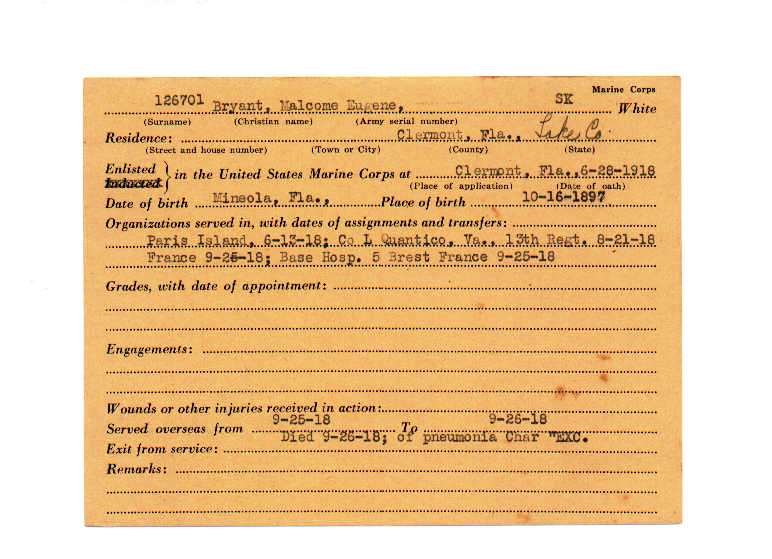 Marine Corps
126701 Bryant, Malcome Eugene, SK White
(Surname) (Christian name) (Army serial number)
Residence: Clermont, Fla., Lake Co.
(Street and house number) (Town or City) (County) (State)
Enlisted
Inducted } in the United States Marine Corps at Clermont, Fla., 6-28-1918
(Place of application) (Date of oath)
Date of birth Mineola, Fla., Place of birth 10-16-1897
Organizations served in, with dates of assignments and transfers:
Paris Island, 6-13-18; Co L Quantico, Va., 13th Regt. 8-21-18
France 9-25-18; Base Hosp. 5 Brest France 9-25-18
Grades, with date of appointment:
Engagements:
Wounds or other injuries received in action:
Served overseas from 9-25-18 To 9-26-18
Exit from service: Died 9-26-18; of pneumonia Char "EXC.
Remarks: